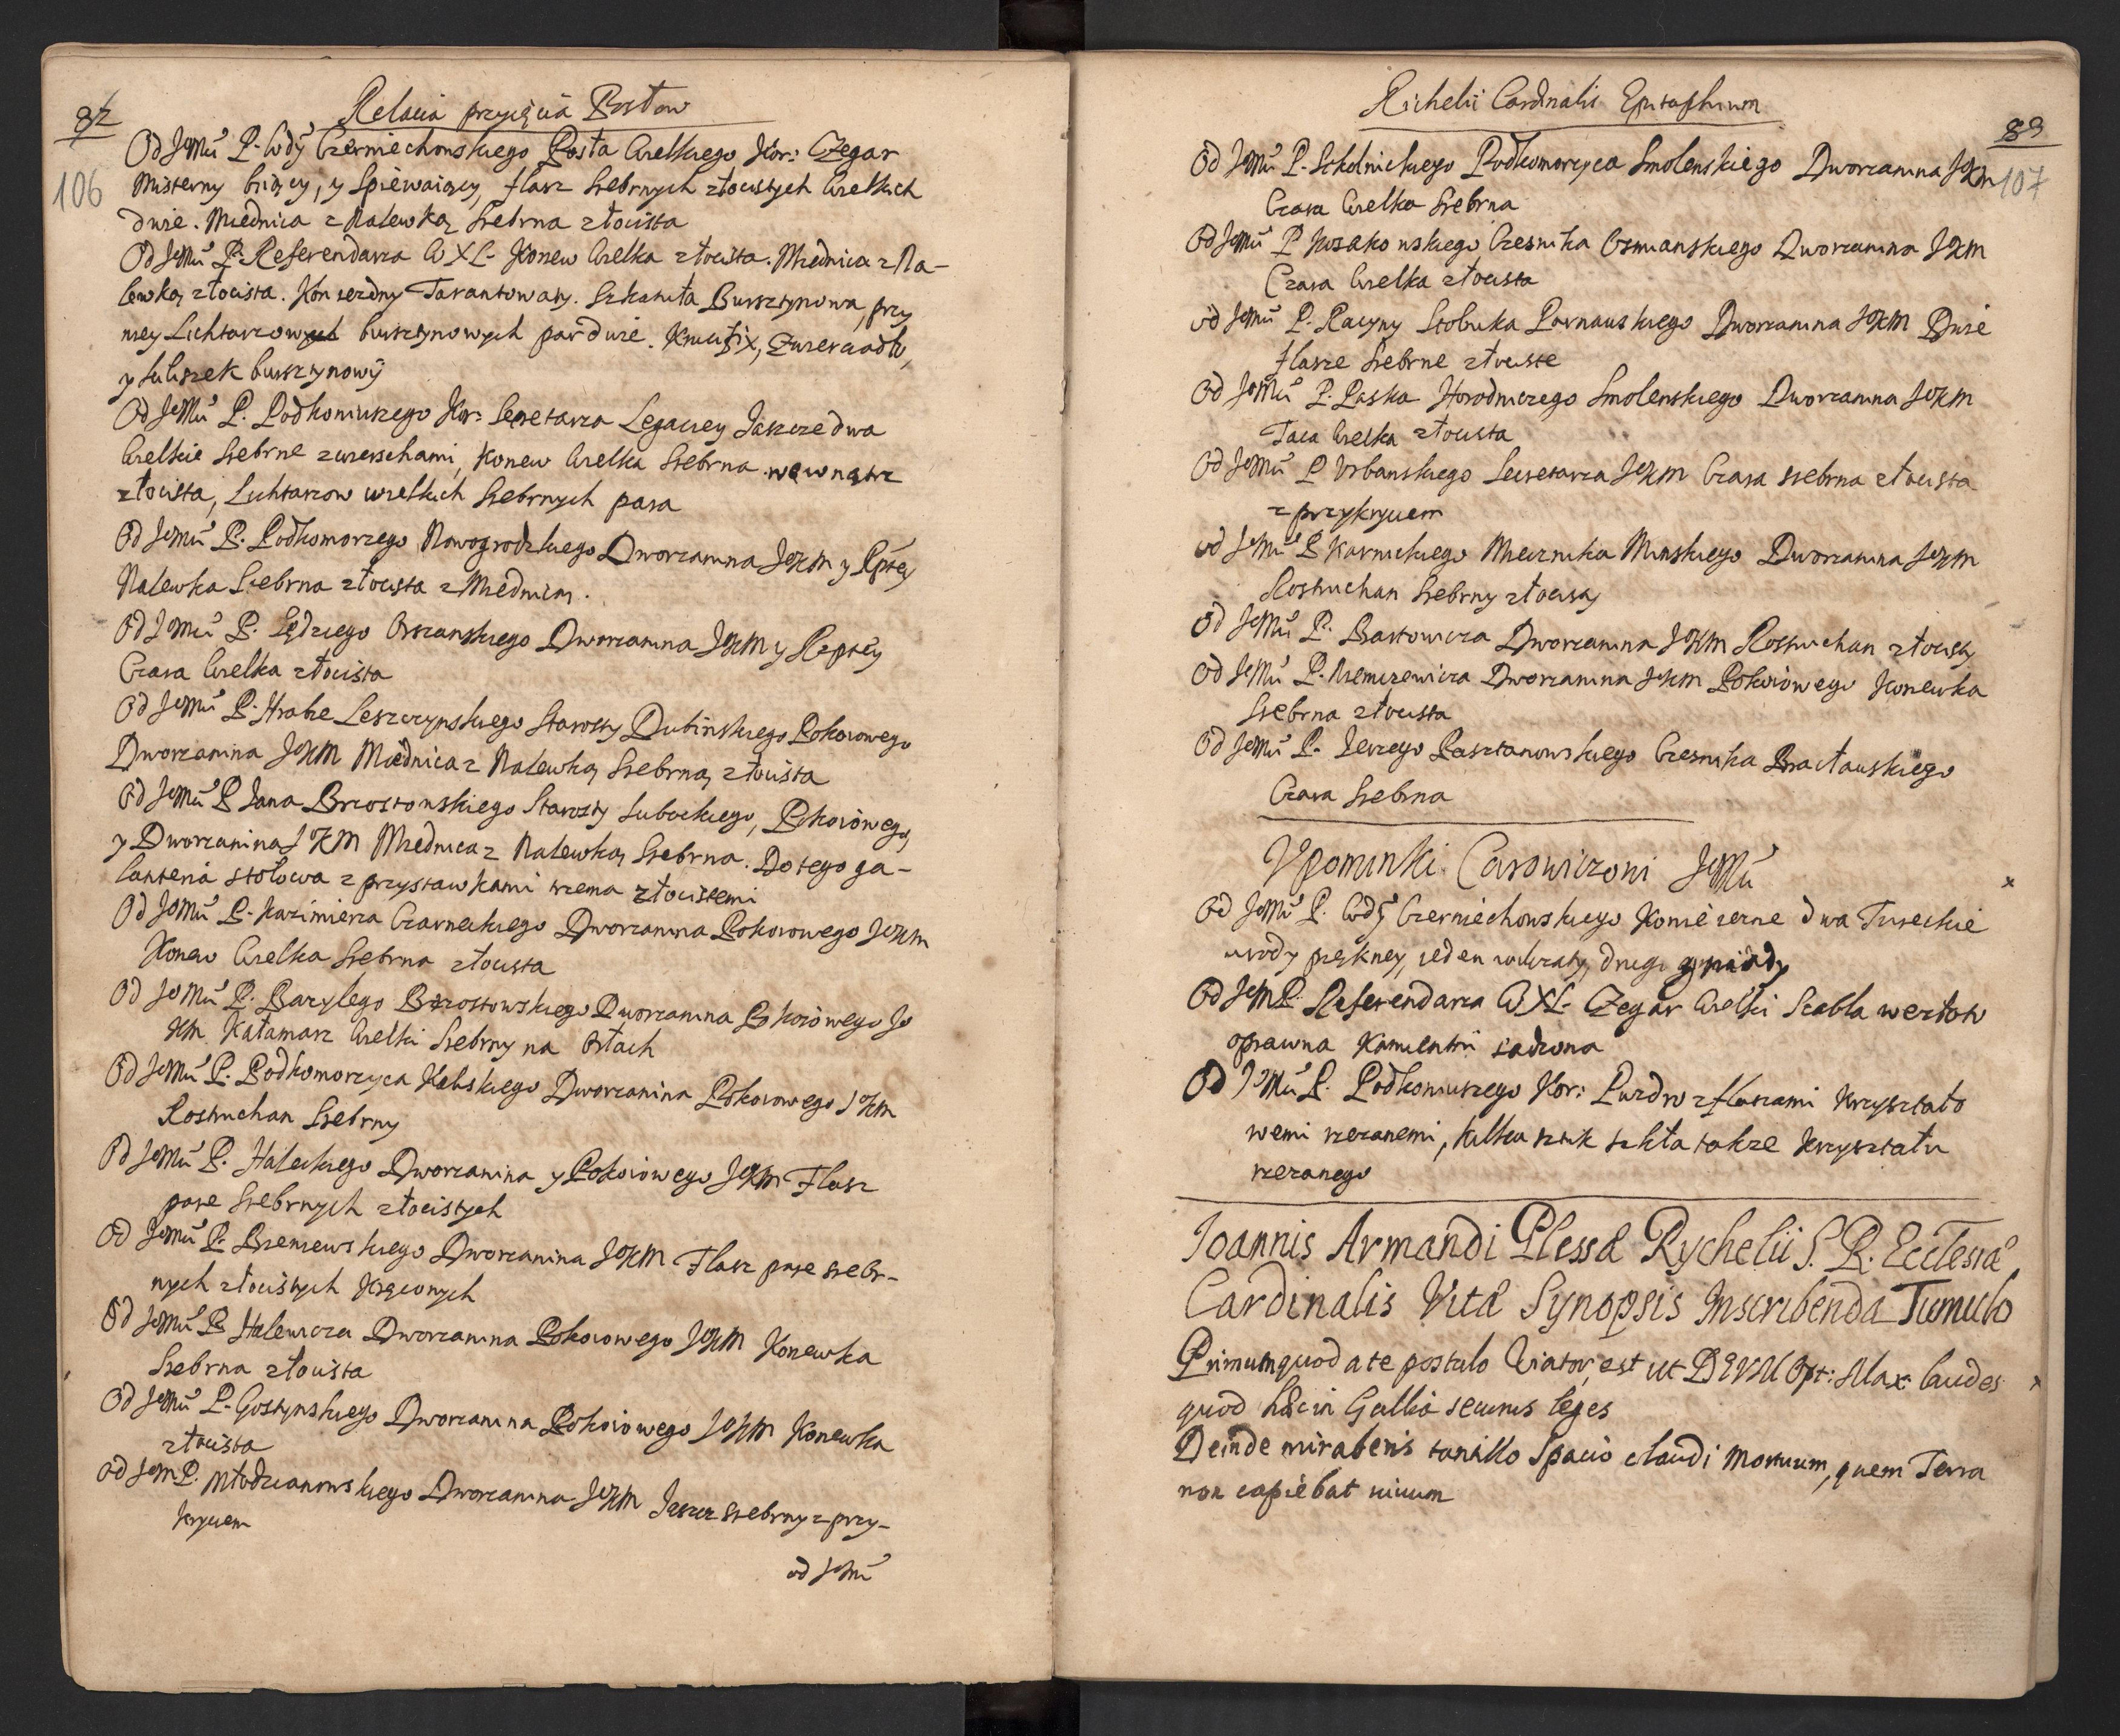 87
106
Relacia przyięcia Posłow
Od JeMci P. Wdy Czerniechowskiego Posła Wielkiego Kor: Czegar
misterny biiący, y Spiewaiący, flasz srebrnych złocistych Wielkich
dwie. Miednica z Nalewką srebrna złocista
Od JeMci P. Referendarza WXL. Konew Wielka złocista. Miednica z Na-
lewką złocista. Kon iezdny Tarantowaty. Szkatuła Bursztynowa, przy
niey Lichtarzowych bursztynowych par dwie. Krucifix, Zwierciadło,
y kubszek bursztynowy
Od JeMci P. Podkoniuszego Kor: Secretarza Legaciey Jaszcze dwa
Wielkie srebrne z wierzchami, Konew Wielka srebrna wewnątrz
złocista, Lichtarzow wielkich srebrnych para
Od JeMci P. Podkomorzego Nowogrodzkiego Dworzanina JeKM y Rptey
Nalewka Srebrna złocista z Miednicą.
Od JeMci P. Sędziego Orszanskiego Dworzanina JeKM y Rzptey
Czara Wielka złocista
Od JeMci P. Hrabie Leszczynskiego Starosty Dubinskiego Pokoiowego
Dworzanina JeKM Miednica z Nalewką Srebrną złocista
Od JeMci P Jana Brzostowskiego Starosty Subockiego, Pokoiowego,
y Dworzanina JKM Miednica z Nalewką Srebrna. Do tego ga-
lanteria stołowa z przystawkami trzema złocistemi
Od JeMci P. Kazimierza Czarneckiego Dworzanina Pokoiowego JeKM
Konew Wielka Srebrna złocista
Od JeMci P. Bazylego Brzostowskiego Dworzanina Pokoiowego Je
KM. Kałamarz Wielki Srebrny na Orłach
Od JeMci P. Podkomorzyca Kaliskiego Dworzanina Pokoiowego JeKM
Rostruchan Srebrny
Od JeMci P. Haleckiego Dworzanina y Pokoiowego JeKM Flasz
pare Srebrnych złocistych
Od JeMci P. Bieniewskiego Dworzanina JeKM Flasz pare srebr-
nych złocistych kręconych
Od JeMci P Halewicza Dworzanina Pokoiowego JeKM Konewka
Srebrna złocista
Od JeMci P. Gostynskiego Dworzanina Pokoiowego JeKM Konewka
złocista
Od JeM P. Młodzianowskiego Dworzanina JeKM Jaszcz srebrny z przy-
kryciem
od JeMci
Richelii Cardinalis Epitaphium
89
107
Od JeMci P. Szkolnickiego Podkomorzyca Smolenskiego Dworzanina JeKM
Czara Wielka Srebrna
Od JeMci P Kossakowskiego Czesnika Oszmianskiego Dworzanina JeKM
Czara Wielka złocista
od JeMci P. Raczyny Stolnika Parnauskiego Dworzanina JeKM Dwie
flasze srebrne złociste
Od JeMci P. Paska Horodniczego Smolenskiego Dworzanina JeKM
Taca Wielka złocista
Od JeMci P Vrbanskiego Secretarza JeKM Czara srebrna złocista
z przykryciem
od JeMci P Karnickiego Miecznika Minskiego Dworzanina JeKM
Rostruchan Srebrny złocisty
Od JeMci P. Bartowicza Dworzanina JeKM Rostruchan złocisty
Od JeMci P. Niemczewicza Dworzanina JeKM Pokoiowego Konewka
Srebrna złocista
Od JeMci P. Jerzego Pasztanowskiego Czesnika Bracławskiego
Czara Srebrna
Vpominki Carowiczowi JeMci
Od JeMci P. Wdy Czerniechowskiego Konie iezne dwa Tureckie
urody piękney, ieden wilczaty, drugi gniady
Od JeM P. Referendarza WXL. Czegar Wielki Szabla w
oprawna Kamienmi sadzona
Od JeMci P. Podkoniuszego Kor: Puzdro z flaszami krzyształo
wemi rzezanemi, kilka sztuk szkła takze krzyształu
rzezanego
Ioannis Armandi Plessæ Rychelii S. R. Ecclesiæ
Cardinalis Vitæ Synopsis Inscribenda Tumulo
Primum quod a te postulo Viator, est ut DEVM Opt: Max: laudes
quod hæc in Gallia securus leges
Deinde miraberis tantillo Spacio claudi Mortuum, quem Terra
non capiebat vivum